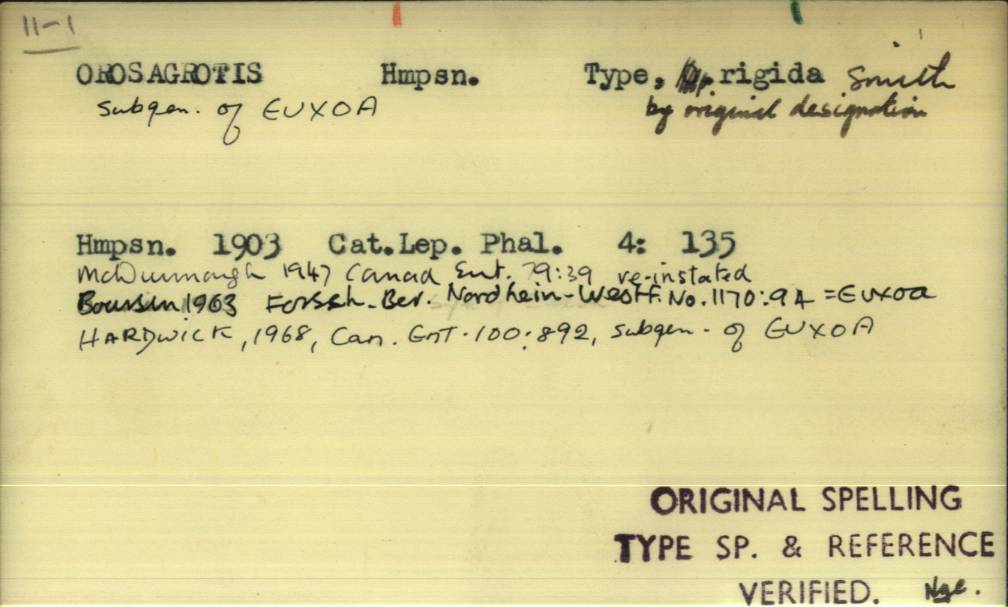 11-1
OROSAGROTIS Hmpsn. Type, rigida Smith
subgen. of EUXOA by original designation
Hmpsn. 1903 Cat.Lep. Phal. 4: 135
McDunnough 1947 Canad Ent. 79:39 re-instated
Boursin 1963 Forssh. Ber. Nordhein-Westf. No. 1170:94 = Euxoa
HARDWICK, 1968, Can. Ent. 100:892, subgen. of EUXOA
ORIGINAL SPELLING
TYPE SP. & REFERENCE
VERIFIED. Nye.